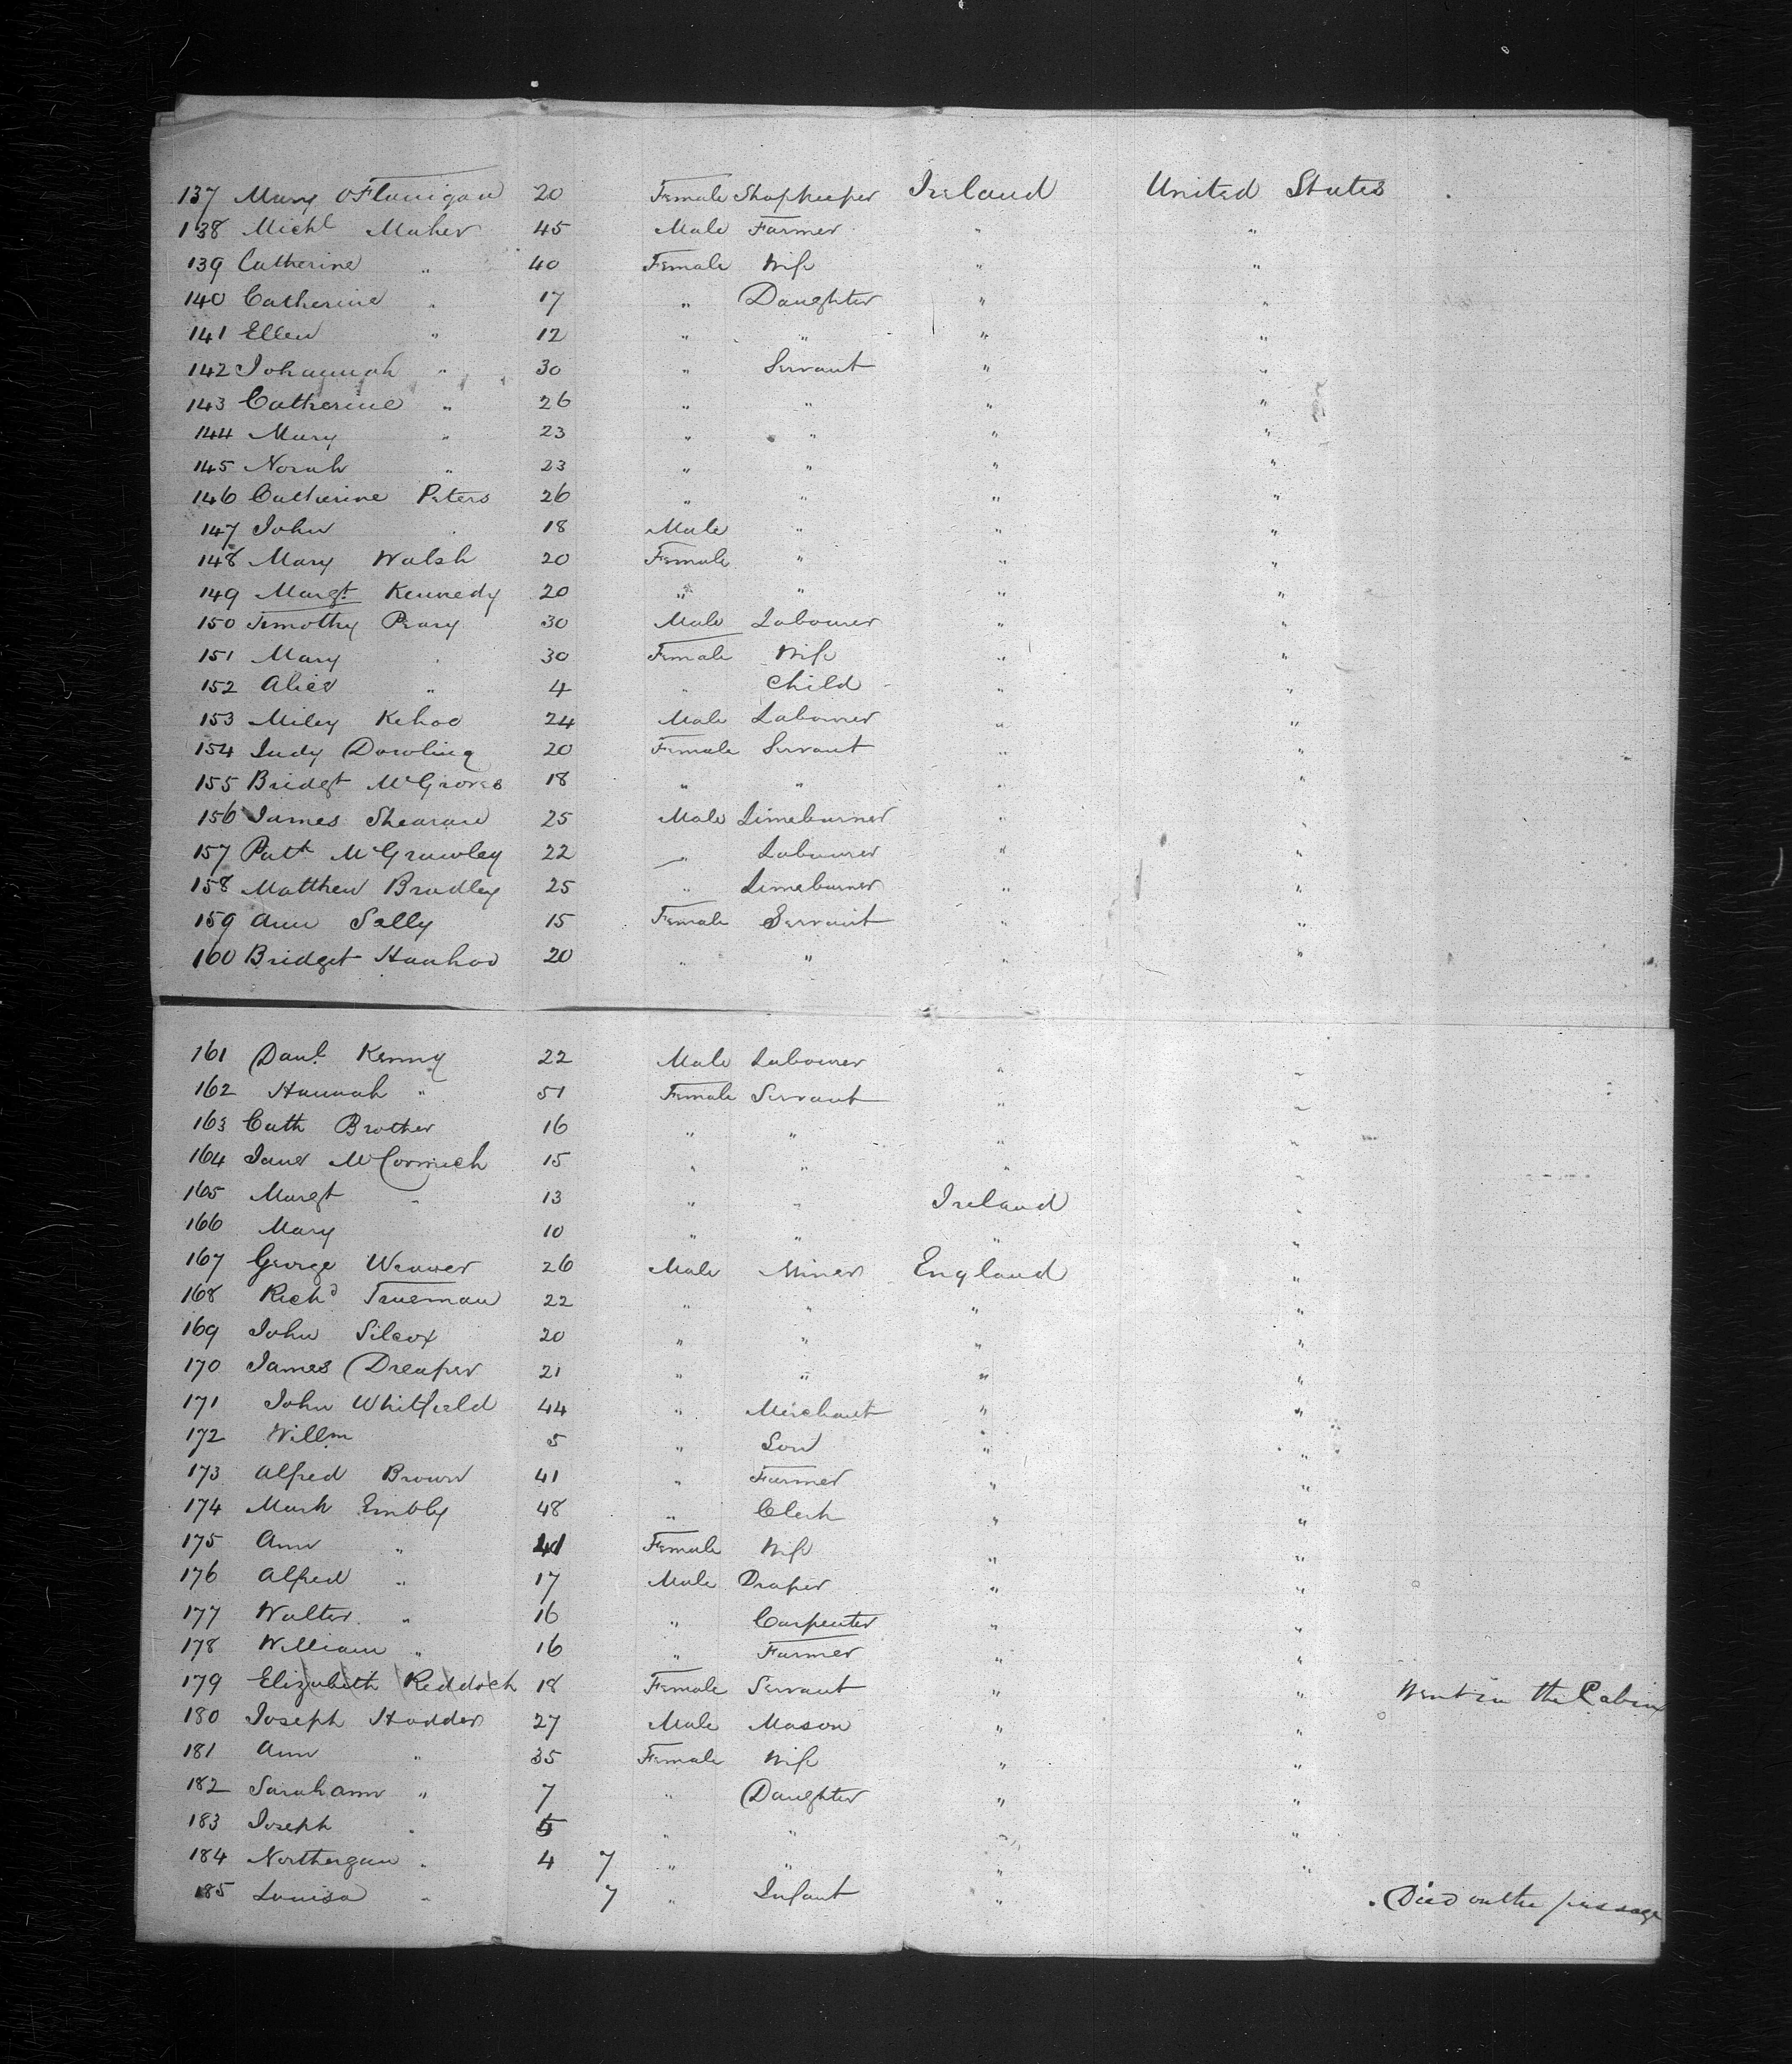 137 Mary OFlanigan 20 Female Shopkeeper Ireland United States
138 Michl Maher 45 Male Farmer " "
139 Catherine " 40 Female Wife " "
140 Catherine " 17 " Daughter " "
141 Ellen " 12 " " " "
142 Johannah " 30 " Servant " "
143 Catherine " 26 " " " "
144 Mary " 23 " " " "
145 Norah " 23 " " " "
146 Catherine Peters 26 " " " "
147 John " 18 Male " " "
148 Mary Walsh 20 Female " " "
149 Margt Kennedy 20 " " " "
150 Timothy 30 Male Labourer " "
151 Mary " 30 Female Wife " "
152 Alice " 4 " Child " "
153 Miley Kehoe 24 Male Labourer " "
154 Judy Dowling 20 Female Servant " "
155 Bridgt 18 " " " "
156 James 25 Male Limeburner " "
157 Patk 22 " Labourer " "
158 Matthew Bradley 25 " Limeburner " "
159 Ann Sally 15 Female Servant " "
160 Bridget 20 " " " "
161 Danl Kenny 22 Male Labourer " "
162 Hannah " 51 Female Servant " "
163 Cath Brother 16 " " " "
164 Jane McCormick 15 " " " "
165 Margt " 13 " " Ireland "
166 Mary 10 " " " "
167 George 26 Male Miner England "
168 Richd Trueman 22 " " " "
169 John Silcox 20 " " " "
170 James Dreaper 21 " " " "
171 John Whitfield 44 " Merchant " "
172 Willm 5 " Son " "
173 Alfred Brown 41 " Farmer " "
174 Mark Embly 48 " Clerk " "
175 Ann " 41 Female Wife " "
176 Alfred " 17 Male Draper " "
177 Walter " 16 " Carpenter " "
178 William " 16 " Farmer " "
179 Elizabeth Reddick 18 Female Servant " " Went in the Cabin
180 Joseph Hodder 27 Male Mason " "
181 Ann " 35 Female Wife " "
182 Sarah Ann " 7 " Daughter " "
183 Joseph " " " " "
184 " 4 7 " " " "
185 Louisa " 7 " Infant " Died on the passage